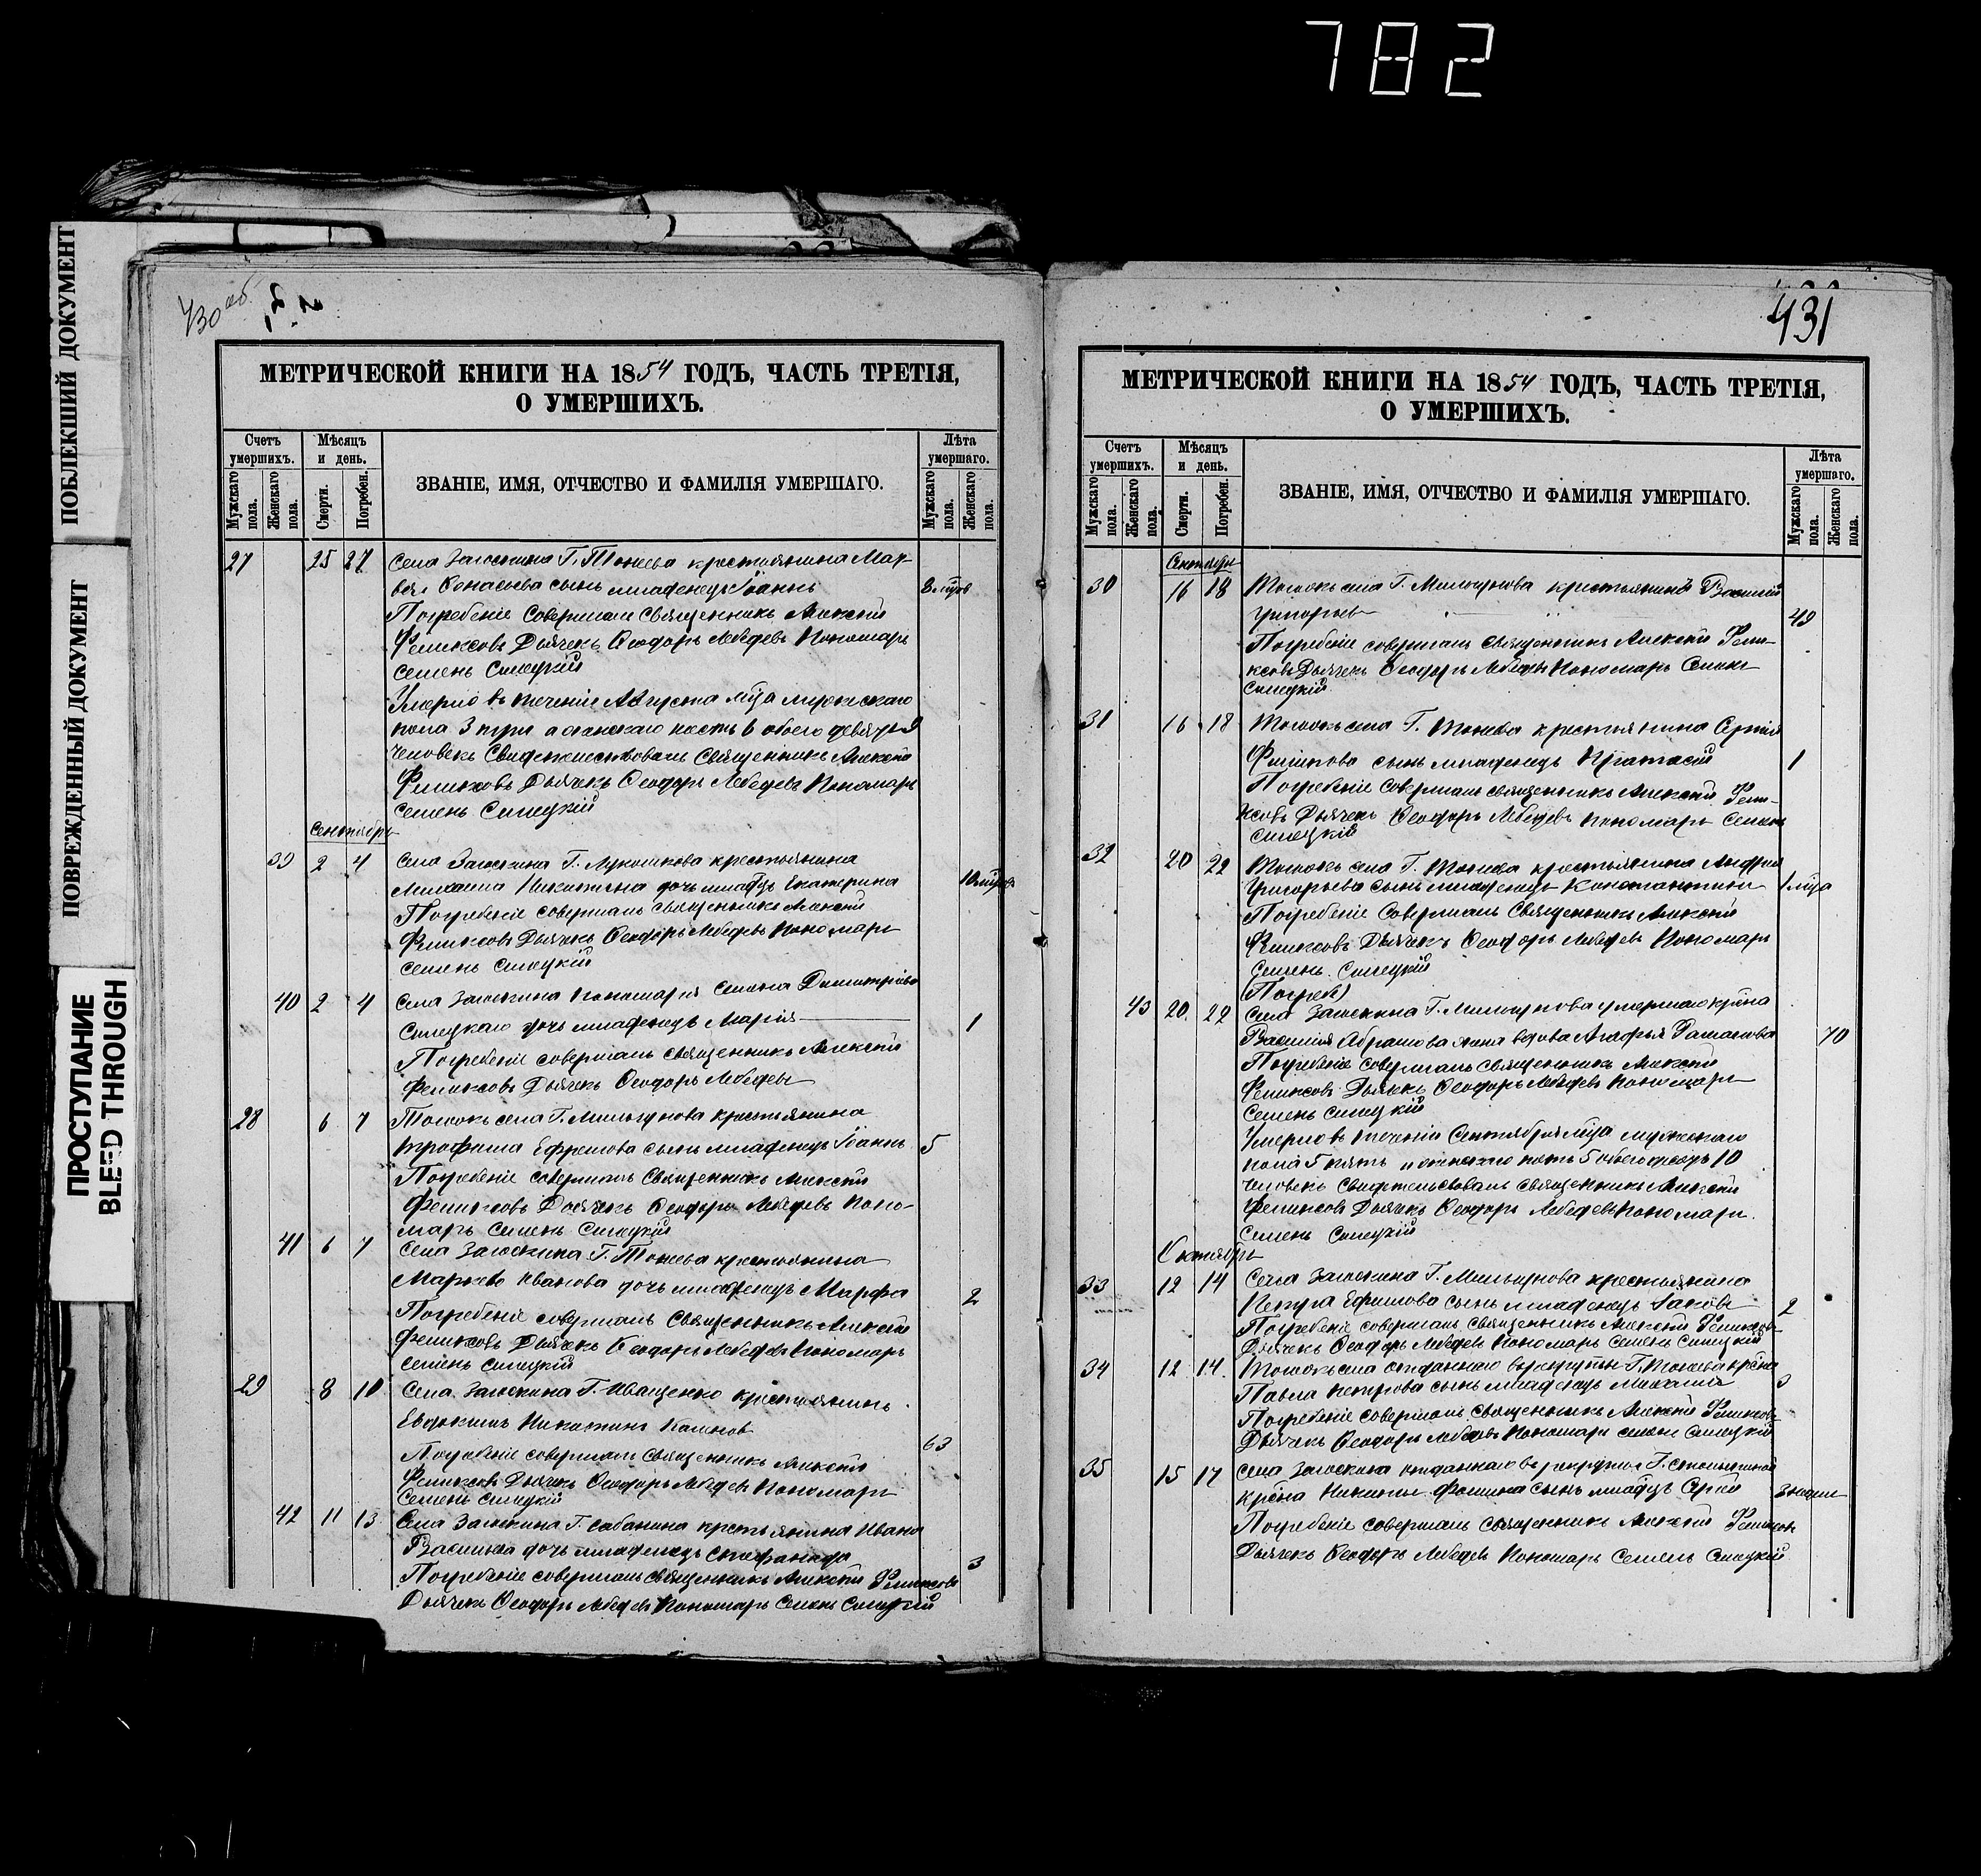 782
ПОБЛЕКШИЙ ДОКУМЕНТ
ПОВРЕЖДЕННЫЙ ДОКУМЕНТ
ПРОСТУПАНИЕ
BLEED THROUGH
430 об.
МЕТРИЧЕСКОЙ КНИГИ НА 1854 ГОДЪ, ЧАСТЬ ТРЕТІЯ,
О УМЕРШИХЪ.
Счетъ умершихъ.
Мѣсяцъ и день.
ЗВАНІЕ, ИМЯ, ОТЧЕСТВО И ФАМИЛІЯ УМЕРШАГО.
Лѣта умершаго.
Мужскаго пола.
Женскаго пола.
Смерти.
Погребен.
Мужскаго пола.
Женскаго пола.
27 25 27 Села Загоскина Г. Тонеева крестьянина Мат-
вея сынъ младенецъ Іоаннъ
Погребеніе совершалъ Священникъ Алексѣй
Феликсовъ Дьячекъ Ѳеодоръ Лебедевъ Пономарь
Семенъ Силецкій
Умерло въ теченіи Августа мца мужескаго
пола 3 три а женскаго шесть 6 обоего девять 9
человекъ Свидетельствовалъ Священникъ Алексѣй
Феликсовъ Дьячекъ Ѳеодоръ Лебедевъ Пономарь
Семенъ Силецкій
Сентябрь
39 2 4 Села Загоскина Г. Лукошкова крестьянина
Михаила Никитина дочь младцъ Екатерина
Погребеніе совершалъ Священникъ Алексѣй
Феликсовъ Дьячекъ Ѳеодоръ Лебедевъ Пономарь
Семенъ Силецкій
40 2 4 Села Загоскина Пономаря Семена Димитріева
Силецкаго дочь младенецъ Марія 1
Погребеніе совершалъ Священникъ Алексѣй
Феликсовъ Дьячекъ Ѳеодоръ Лебедевъ
28 6 7 Тогожъ села Г. Мильгунова крестьянина
Трофима Ефремова сынъ младенецъ Іоаннъ 5
Погребеніе совершалъ Священникъ Алексѣй
Феликсовъ Дьячекъ Ѳеодоръ Лебедевъ Поно-
марь Семенъ Силецкій
41 6 7 Села Загоскина Г. Тонеева крестьянина
Иванова дочь младенецъ Марфа 2
Погребеніе совершалъ Священникъ Алексѣй
Феликсовъ Дьячекъ Ѳеодоръ Лебедевъ Пономарь
Семенъ Силецкій
29 8 10 Села Загоскина Г. Иващенко крестьянинъ
Евдокимъ Никитинъ 63
Погребеніе совершалъ Священникъ Алексѣй
Феликсовъ Дьячекъ Ѳеодоръ Лебедевъ Пономарь
Семенъ Силецкій
42 11 13 Села Загоскина Г. Сабанина крестьянина Ивана
Васильева дочь младенецъ Стефанида 3
Погребеніе совершалъ Священникъ Алексѣй Феликсовъ
Дьячекъ Ѳеодоръ Лебедевъ Пономарь Семенъ Силецкій
431
МЕТРИЧЕСКОЙ КНИГИ НА 1854 ГОДЪ, ЧАСТЬ ТРЕТІЯ,
О УМЕРШИХЪ.
Счетъ умершихъ.
Мѣсяцъ и день.
ЗВАНІЕ, ИМЯ, ОТЧЕСТВО И ФАМИЛІЯ УМЕРШАГО.
Лѣта умершаго.
Мужскаго пола.
Женскаго пола.
Смерти.
Погребен.
Мужскаго пола.
Женскаго пола.
Сентябрь
30 16 18 Тогожъ села Г. Мильгунова крестьянинъ Василій
Григорьевъ 49
Погребеніе совершалъ Священникъ Алексѣй Фели-
ксовъ Дьячекъ Ѳеодоръ Лебедевъ Пономарь Семенъ
Силецкій
31 16 18 Тогожъ села Г. Тонеева крестьянина Сергія
Филипова сынъ младенецъ 1
Погребеніе совершалъ Священникъ Алексѣй Фели-
ксовъ Дьячекъ Ѳеодоръ Лебедевъ Пономарь Семенъ
Силецкій
32 20 22 Тогожъ села Г. Тонеева крестьянина Андрея
Григорьева сынъ младенецъ Константинъ 1 мца
Погребеніе Совершалъ Священникъ Алексѣй
Феликсовъ Дьячекъ Ѳеодоръ Лебедевъ Пономарь
Семенъ Силецкій
(Погреб)
43 20 22 Села Загоскина Г. Мильгунова умершаго крѣна
Василія Абрамова жена вдова Агафья 70
Погребеніе совершалъ Священникъ Алексѣй
Феликсовъ Дьячекъ Ѳеодоръ Лебедевъ Пономарь
Семенъ Силецкій
Умерло въ теченіи Сентября мца мужескаго
пола 5 пять и женскаго пять 5 обоего 10
человекъ Свидетельствовалъ Священникъ Алексѣй
Феликсовъ Дьячекъ Ѳеодоръ Лебедевъ Пономарь
Семенъ Силецкій
Октябрь
33 12 14 Села Загоскина Г. Мильгунова крестьянина
Петра Ефимова сынъ младенецъ Іаковъ 2
Погребеніе совершалъ Священникъ Алексѣй Феликсовъ
Дьячекъ Ѳеодоръ Лебедевъ Пономарь Семенъ Силецкій
34 12 14 Тогожъ села отданнаго въ рекруты Г. Тонеева крѣна
Павла Петрова сынъ младенецъ Михаилъ 3
Погребеніе совершалъ Священникъ Алексѣй Феликсовъ
Дьячекъ Ѳеодоръ Лебедевъ Пономарь Семенъ Силецкій
35 15 17 Села Загоскина отданнаго въ рекруты Г.
крѣна Никиты Фомина сынъ младцъ Сергій 3 недели
Погребеніе совершалъ Священникъ Алексѣй Феликсовъ
Дьячекъ Ѳеодоръ Лебедевъ Пономарь Семенъ Силецкій